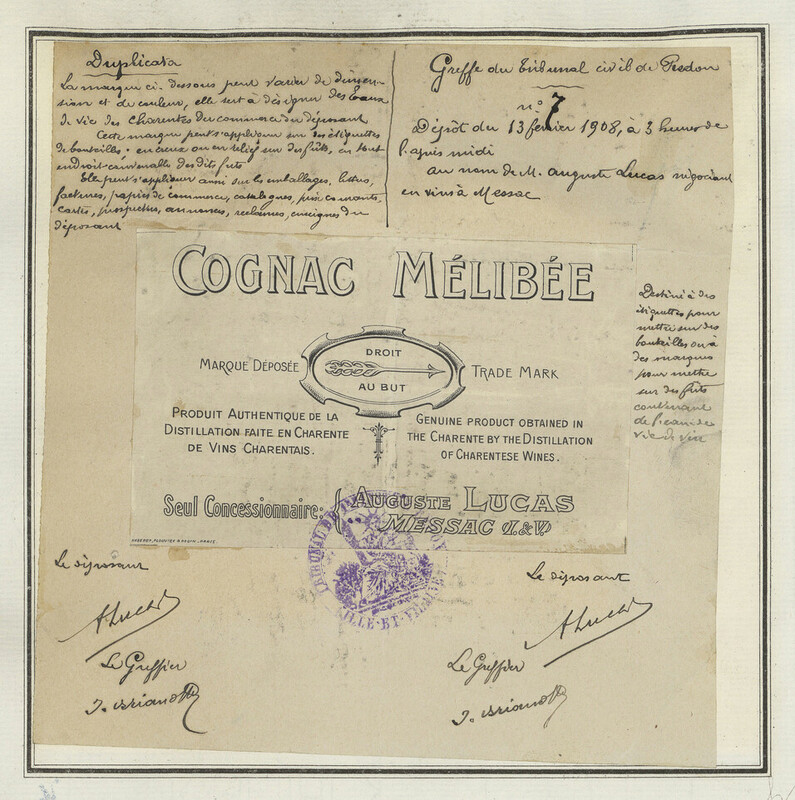 Duplicata
La marque ci-dessous peut varier de dimen-
sion et de couleur, elle sert à désigner des Eaux
de vie des Charentes du commerce du déposant
Cette marque peut s'appliquer sur des étiquettes
de bouteilles - en creux ou en relief sur des fûts, en tout
endroit convenable des dits fûts
Elle peut s'appliquer aussi sur les emballages, lettres,
factures, papiers de commerce, catalogues, prix courants,
cartes, prospectus, annonces, réclames, enseignes du
déposant
Greffe du Tribunal civil de Redon
n° 7
Dépôt du 13 février 1908, à 3 heures de
l'après midi
au nom de M. Auguste Lucas négociant
en vins à Messac
COGNAC MÉLIBÉE
MARQUE DÉPOSÉE
DROIT
AU BUT
TRADE MARK
PRODUIT AUTHENTIQUE DE LA
DISTILLATION FAITE EN CHARENTE
DE VINS CHARENTAIS.
GENUINE PRODUCT OBTAINED IN
THE CHARENTE BY THE DISTILLATION
OF CHARENTESE WINES.
Seul Concessionnaire: AUGUSTE LUCAS
MESSAC (I.&V.)
Destiné à des
étiquettes pour
mettre sur des
bouteilles ou à
des marques
pour mettre
sur des fûts
contenant
de l'eau de
vie de vin
TRIBUNAL DE
ILLE-ET-VILAINE
Le déposant
A Lucas
Le Greffier
Le déposant
A Lucas
Le Greffier